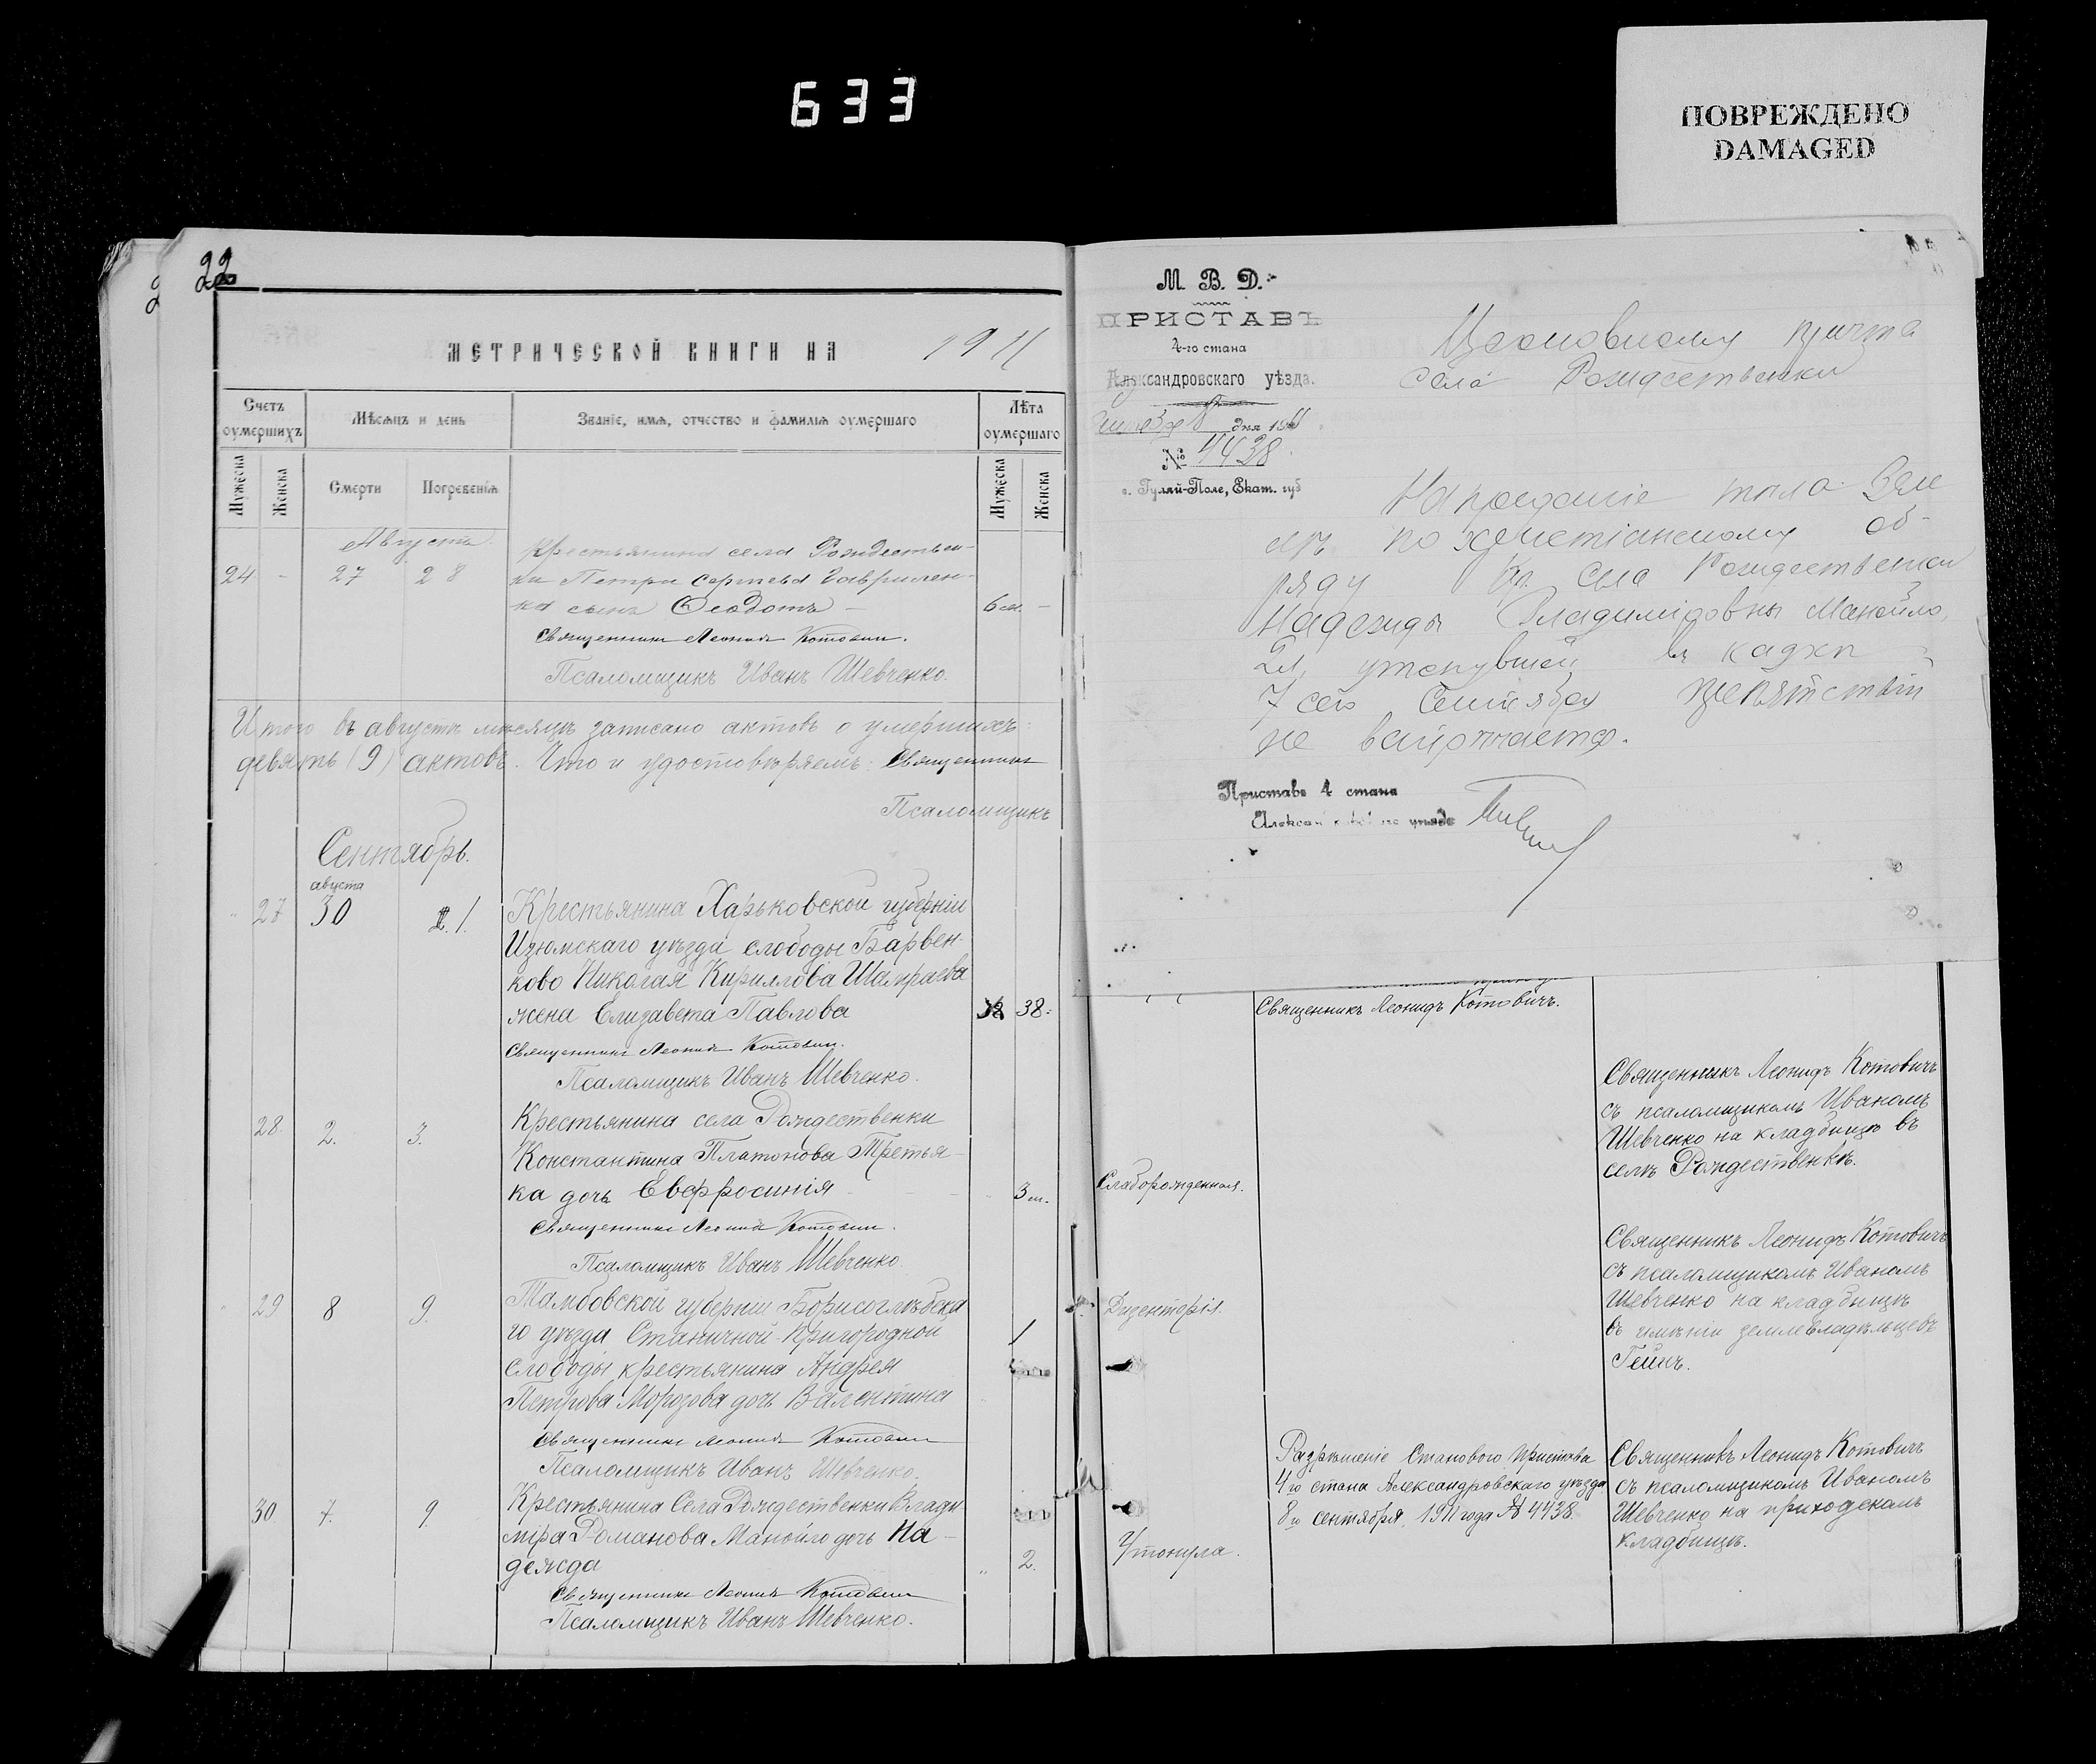 633
ПОВРЕЖДЕНО
DAMAGED
22
МЕТРИЧЕСКОЙ КНИГИ НА 1911
Счетъ оумершихъ
Мѣсяцъ и день
Званіе, имя, отчество и фамилія оумершаго
Лѣта оумершаго
Мужеска
Женска
Смерти
Погребенія
Мужеска
Женска
Августа
24 - 27 28
Крестьянина села Рождествен-
ки Петра Сергѣева Гавриленко-
ка сынъ Ѳеодотъ - 6 м. -
Священникъ Леонидъ Котовичъ.
Псаломщикъ Иванъ Шевченко.
Итого въ августѣ мѣсяцѣ записано актовъ о умершихъ:
девять (9) актовъ. Что и удостовѣряемъ: Священникъ
Псаломщикъ
Сентябрь.
августа
27 30 1.
Крестьянина Харьковской губерніи
Изюмскаго уѣзда слободы Барвен-
ково Николая Кириллова Шапраева
жена Елизавета Павлова 38.
Священникъ Леонидъ Котовичъ.
Псаломщикъ Иванъ Шевченко.
28. 2. 3.
Крестьянина села Рождественки
Константина Платонова Третья-
ка дочь Евфросинія - - 3 м.
Священникъ Леонидъ Котовичъ.
Псаломщикъ Иванъ Шевченко.
29 8 9.
Тамбовской губерніи Борисоглѣбска
го уѣзда Станичной-Пригородной 1
слободы крестьянина Андрея
Петрова Морозова дочь Валентина
Священникъ Леонидъ Котовичъ
Псаломщикъ Иванъ Шевченко.
30 7. 9.
Крестьянина Села Рождественки Влади
міра Романова Манойло дочь На-
дежда 2.
Священникъ Леонидъ Котовичъ
Псаломщикъ Иванъ Шевченко.
М. В. Д.
ПРИСТАВЪ
4-го стана
Александровскаго уѣзда.
8 дня 1911
№ 4438
с. Гуляй-Поле, Екат. губ
Церковному причта
села Рождественки
На преданіе тѣла зем
лѣ по христіанскому об-
ряду кр. села Рождественки
Надежды Владиміровны Манойло,
2 л, утонувшей въ кадкѣ
7 сего Сентября препятствій
не встрѣчается.
Приставъ 4 стана
Александровскаго уѣзда
Священникъ Леонидъ Котовичъ.
Священникъ Леонидъ Котовичъ
съ псаломщикомъ Иваномъ
Шевченко на кладбищѣ въ
селѣ Рождественкѣ.
Слаборожденная.
Священникъ Леонидъ Котовичъ
съ псаломщикомъ Иваномъ
Шевченко на кладбищѣ
въ имѣніи землевладѣльцевъ
Гейнъ.
Дизентерія.
Разрѣшеніе Станового Пристава
4го стана Александровскаго уѣзда
8го сентября 1911 года № 4438.
Священникъ Леонидъ Котовичъ
съ псаломщикомъ Иваномъ
Шевченко на приходскомъ
кладбищѣ.
Утонула.